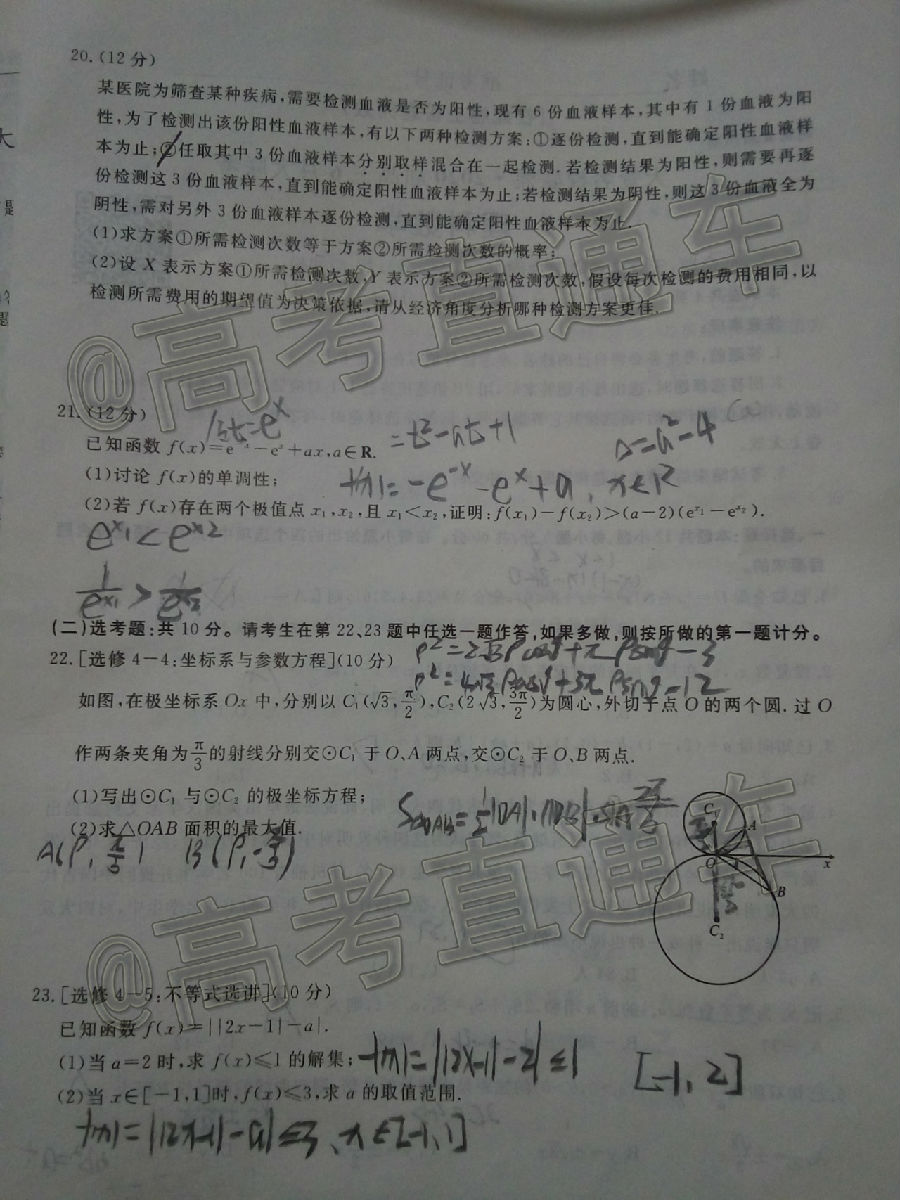 20.(12分)
某医院为筛查某种疾病,需要检测血液是否为阳性,现有6份血液样本,其中有1份血液为阳
性,为了检测出该份阳性血液样本,有以下两种检测方案:①逐份检测,直到能确定阳性血液样
本为止;②任取其中3份血液样本分别取样混合在一起检测.若检测结果为阳性,则需要再逐
份检测这3份血液样本,直到能确定阳性血液样本为止;若检测结果为阴性,则这3份血液全为
阴性,需对另外3份血液样本逐份检测,直到能确定阳性血液样本为止.
(1)求方案①所需检测次数等于方案②所需检测次数的概率;
(2)设X表示方案①所需检测次数,Y表示方案②所需检测次数,假设每次检测的费用相同,以
检测所需费用的期望值为决策依据,请从经济角度分析哪种检测方案更佳.
@高考直通车
21.(12分)
t=e^x
=t²-at+1
Δ=a²-4
已知函数f(x)=e⁻ˣ-eˣ+ax,a∈R.
(1)讨论f(x)的单调性;
f'(x)=-e^-x-e^x+a,x∈R
(2)若f(x)存在两个极值点x₁,x₂,且x₁<x₂,证明:f(x₁)-f(x₂)>(a-2)(e^x₁-e^x₂).
e^x1<e^x2
1/e^x1>1/e^x2
(二)选考题:共10分。请考生在第22、23题中任选一题作答,如果多做,则按所做的第一题计分。
22.[选修4-4:坐标系与参数方程](10分)
如图,在极坐标系Ox中,分别以C₁(√3,π/2),C₂(2√3,3π/2)为圆心,外切于点O的两个圆.过O
作两条夹角为π/3的射线分别交⊙C₁于O、A两点,交⊙C₂于O、B两点.
(1)写出⊙C₁与⊙C₂的极坐标方程;
(2)求△OAB面积的最大值.
C₁
A
O
x
B
C₂
@高考直通车
23.[选修4-5:不等式选讲](10分)
已知函数f(x)=||2x-1|-a|.
(1)当a=2时,求f(x)≤1的解集;
f(x)=||2x-1|-2|≤1
[-1,2]
(2)当x∈[-1,1]时,f(x)≤3,求a的取值范围.
f(x)=||2x-1|-a|≤3,x∈[-1,1]